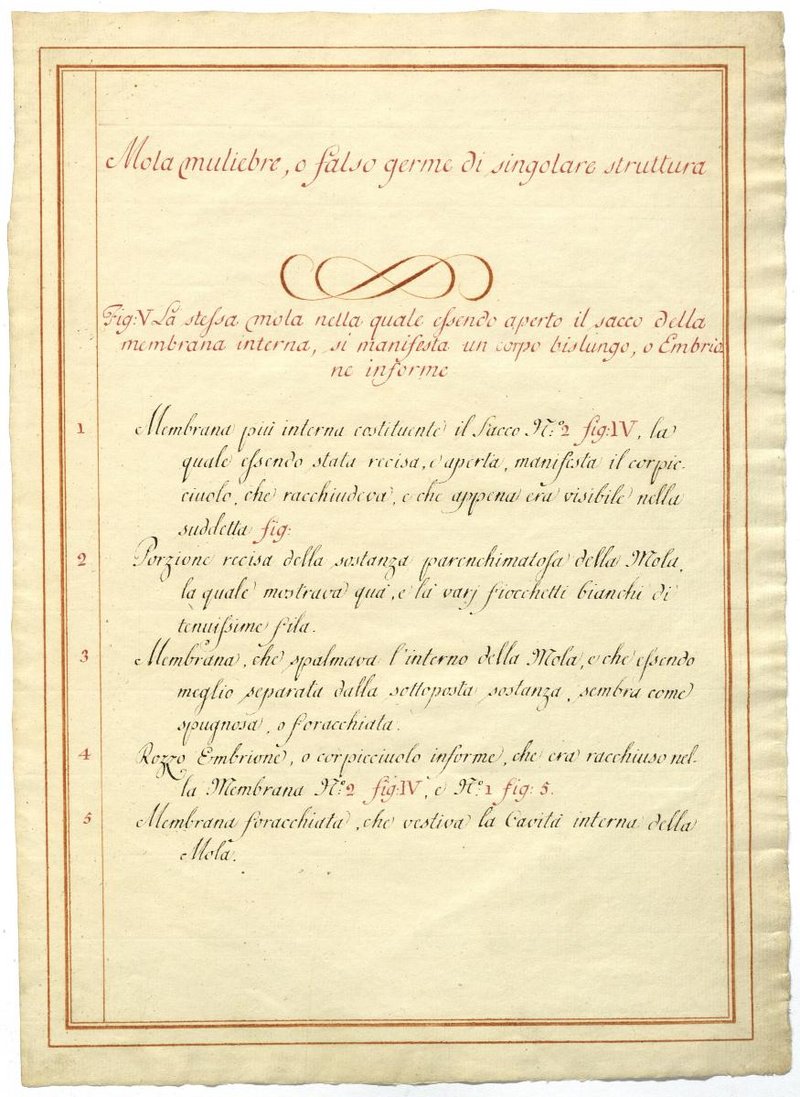 Mola muliebre, o falso germe di singolare struttura
Fig: V La stessa mola nella quale essendo aperto il sacco della
membrana interna, si manifesta un corpo bislungo, o Embrio
ne informe
1 Membrana più interna costituente il Sacco N.º 2 fig: IV, la
quale essendo stata recisa, e aperta, manifesta il corpic-
ciuolo, che racchiudeva, e che appena era visibile nella
suddetta fig:
2 Porzione recisa della sostanza parenchimatosa della Mola,
la quale mostrava quà, e là varj fiocchetti bianchi di
tenuissime fila.
3 Membrana, che spalmava l'interno della Mola, e che essendo
meglio separata dalla sottoposta sostanza, sembra come
spugnosa, o foracchiata.
4 Rozzo Embrione, o corpicciuolo informe, che era racchiuso nel-
la Membrana N.º 2 fig: IV, e N.º 1 fig: 5.
5 Membrana foracchiata, che vestiva la Cavità interna della
Mola.